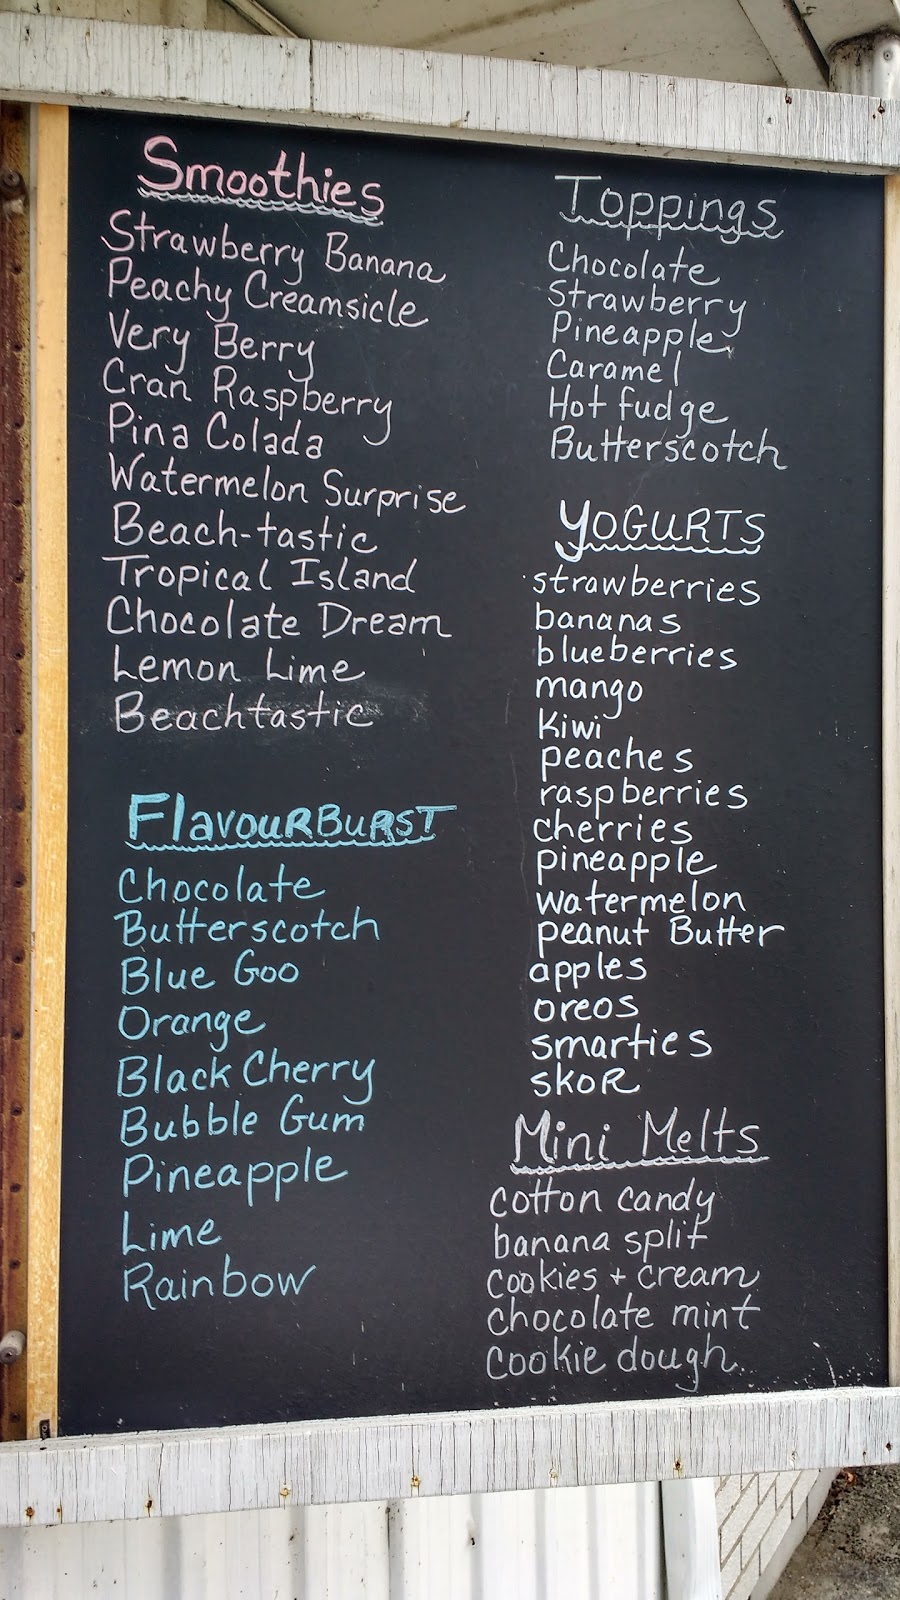 Smoothies
Strawberry Banana
Peachy Creamsicle
Very Berry
Cran Raspberry
Pina Colada
Watermelon Surprise
Beach-tastic
Tropical Island
Chocolate Dream
Lemon Lime
Beachtastic
FlavourBurst
Chocolate
Butterscotch
Blue Goo
Orange
Black Cherry
Bubble Gum
Pineapple
Lime
Rainbow
Toppings
Chocolate
Strawberry
Pineapple
Caramel
Hot fudge
Butterscotch
YOGURTS
strawberries
bananas
blueberries
mango
kiwi
peaches
raspberries
cherries
pineapple
watermelon
peanut Butter
apples
oreos
smarties
SKOR
Mini Melts
cotton candy
banana split
cookies + cream
chocolate mint
cookie dough